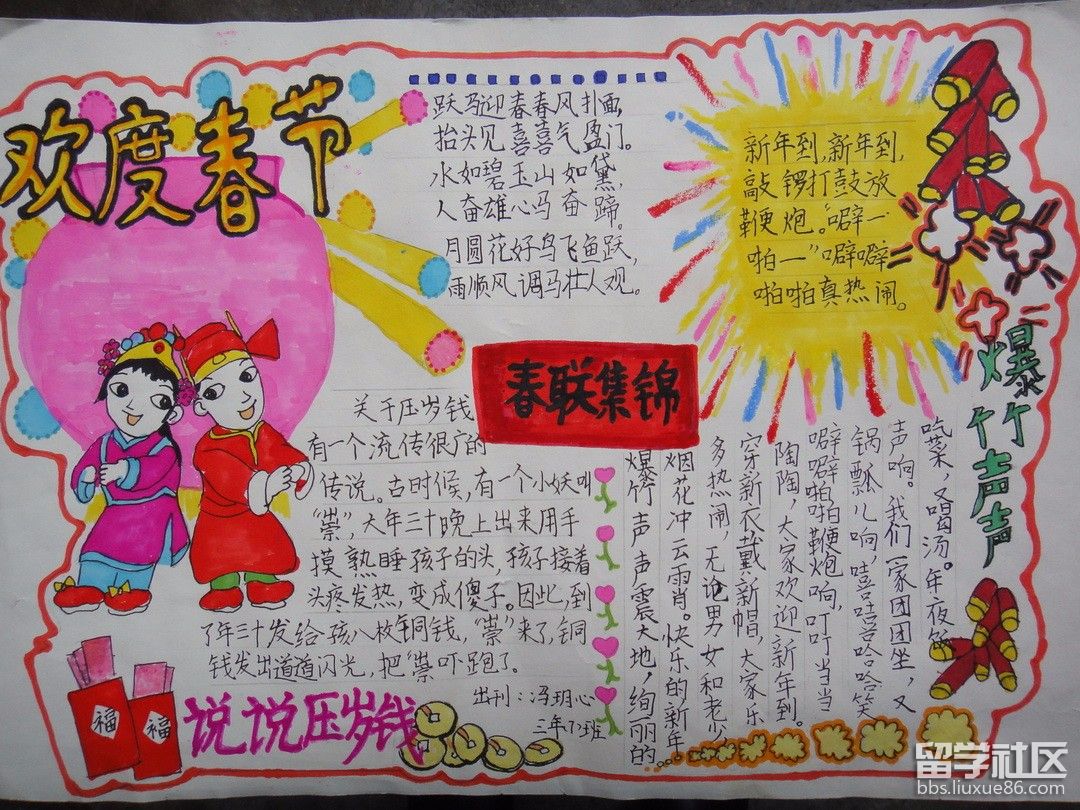 欢度春节
跃马迎春春风扑面,
抬头见喜喜气盈门。
水如碧玉山如黛,
人奋雄心马奋蹄。
月圆花好鸟飞鱼跃,
雨顺风调马壮人观。
新年到,新年到,
敲锣打鼓放
鞭炮。“噼一
啪一”噼噼
啪啪真热闹。
春联集锦
关于压岁钱
有一个流传很广的
传说。古时候,有一个小妖叫
“祟”,大年三十晚上出来用手
摸熟睡孩子的头,孩子接着
头疼发热,变成傻子。因此,到
了年三十发给孩八枚铜钱,“祟”来了,铜
钱发出道道闪光,把“祟吓跑了。
出刊:冯玥心
三年12班
说说压岁钱
福
福
爆竹声声
吃菜,又喝汤。年夜饭
声响。我们一家团团坐,又
锅瓢儿响,嘻嘻哈哈笑
噼噼啪啪鞭炮响,叮叮当当
陶陶,大家欢迎新年到。
穿新衣戴新帽,大家乐
多热闹,无论男女和老少
烟花冲云霄。快乐的新年
爆竹声声震大地,绚丽的
留学社区
bbs.liuxue86.com